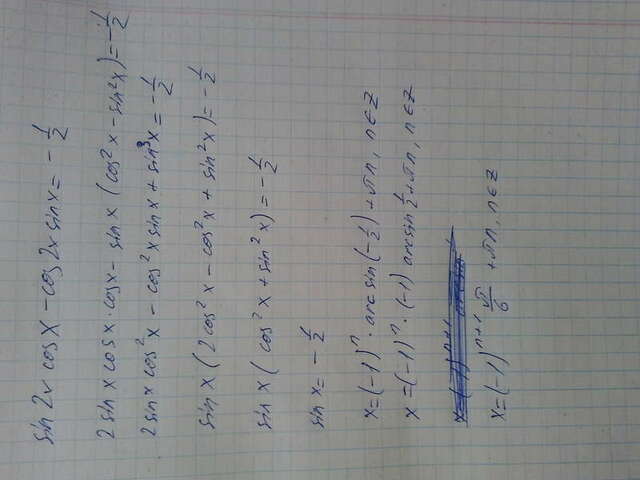 sin 2x cos x - cos 2x sin x = - 1/2
2 sin x cos x · cos x - sin x (cos² x - sin² x) = - 1/2
2 sin x cos² x - cos² x sin x + sin³ x = - 1/2
sin x (2 cos² x - cos² x + sin² x) = - 1/2
sin x (cos² x + sin² x) = - 1/2
sin x = - 1/2
x = (-1)ⁿ · arc sin (- 1/2) + πn, n ∈ Z
x = (-1)ⁿ · (-1) arcsin 1/2 + πn, n ∈ Z
x = (-1)ⁿ⁺¹ π/6 + πn, n ∈ Z